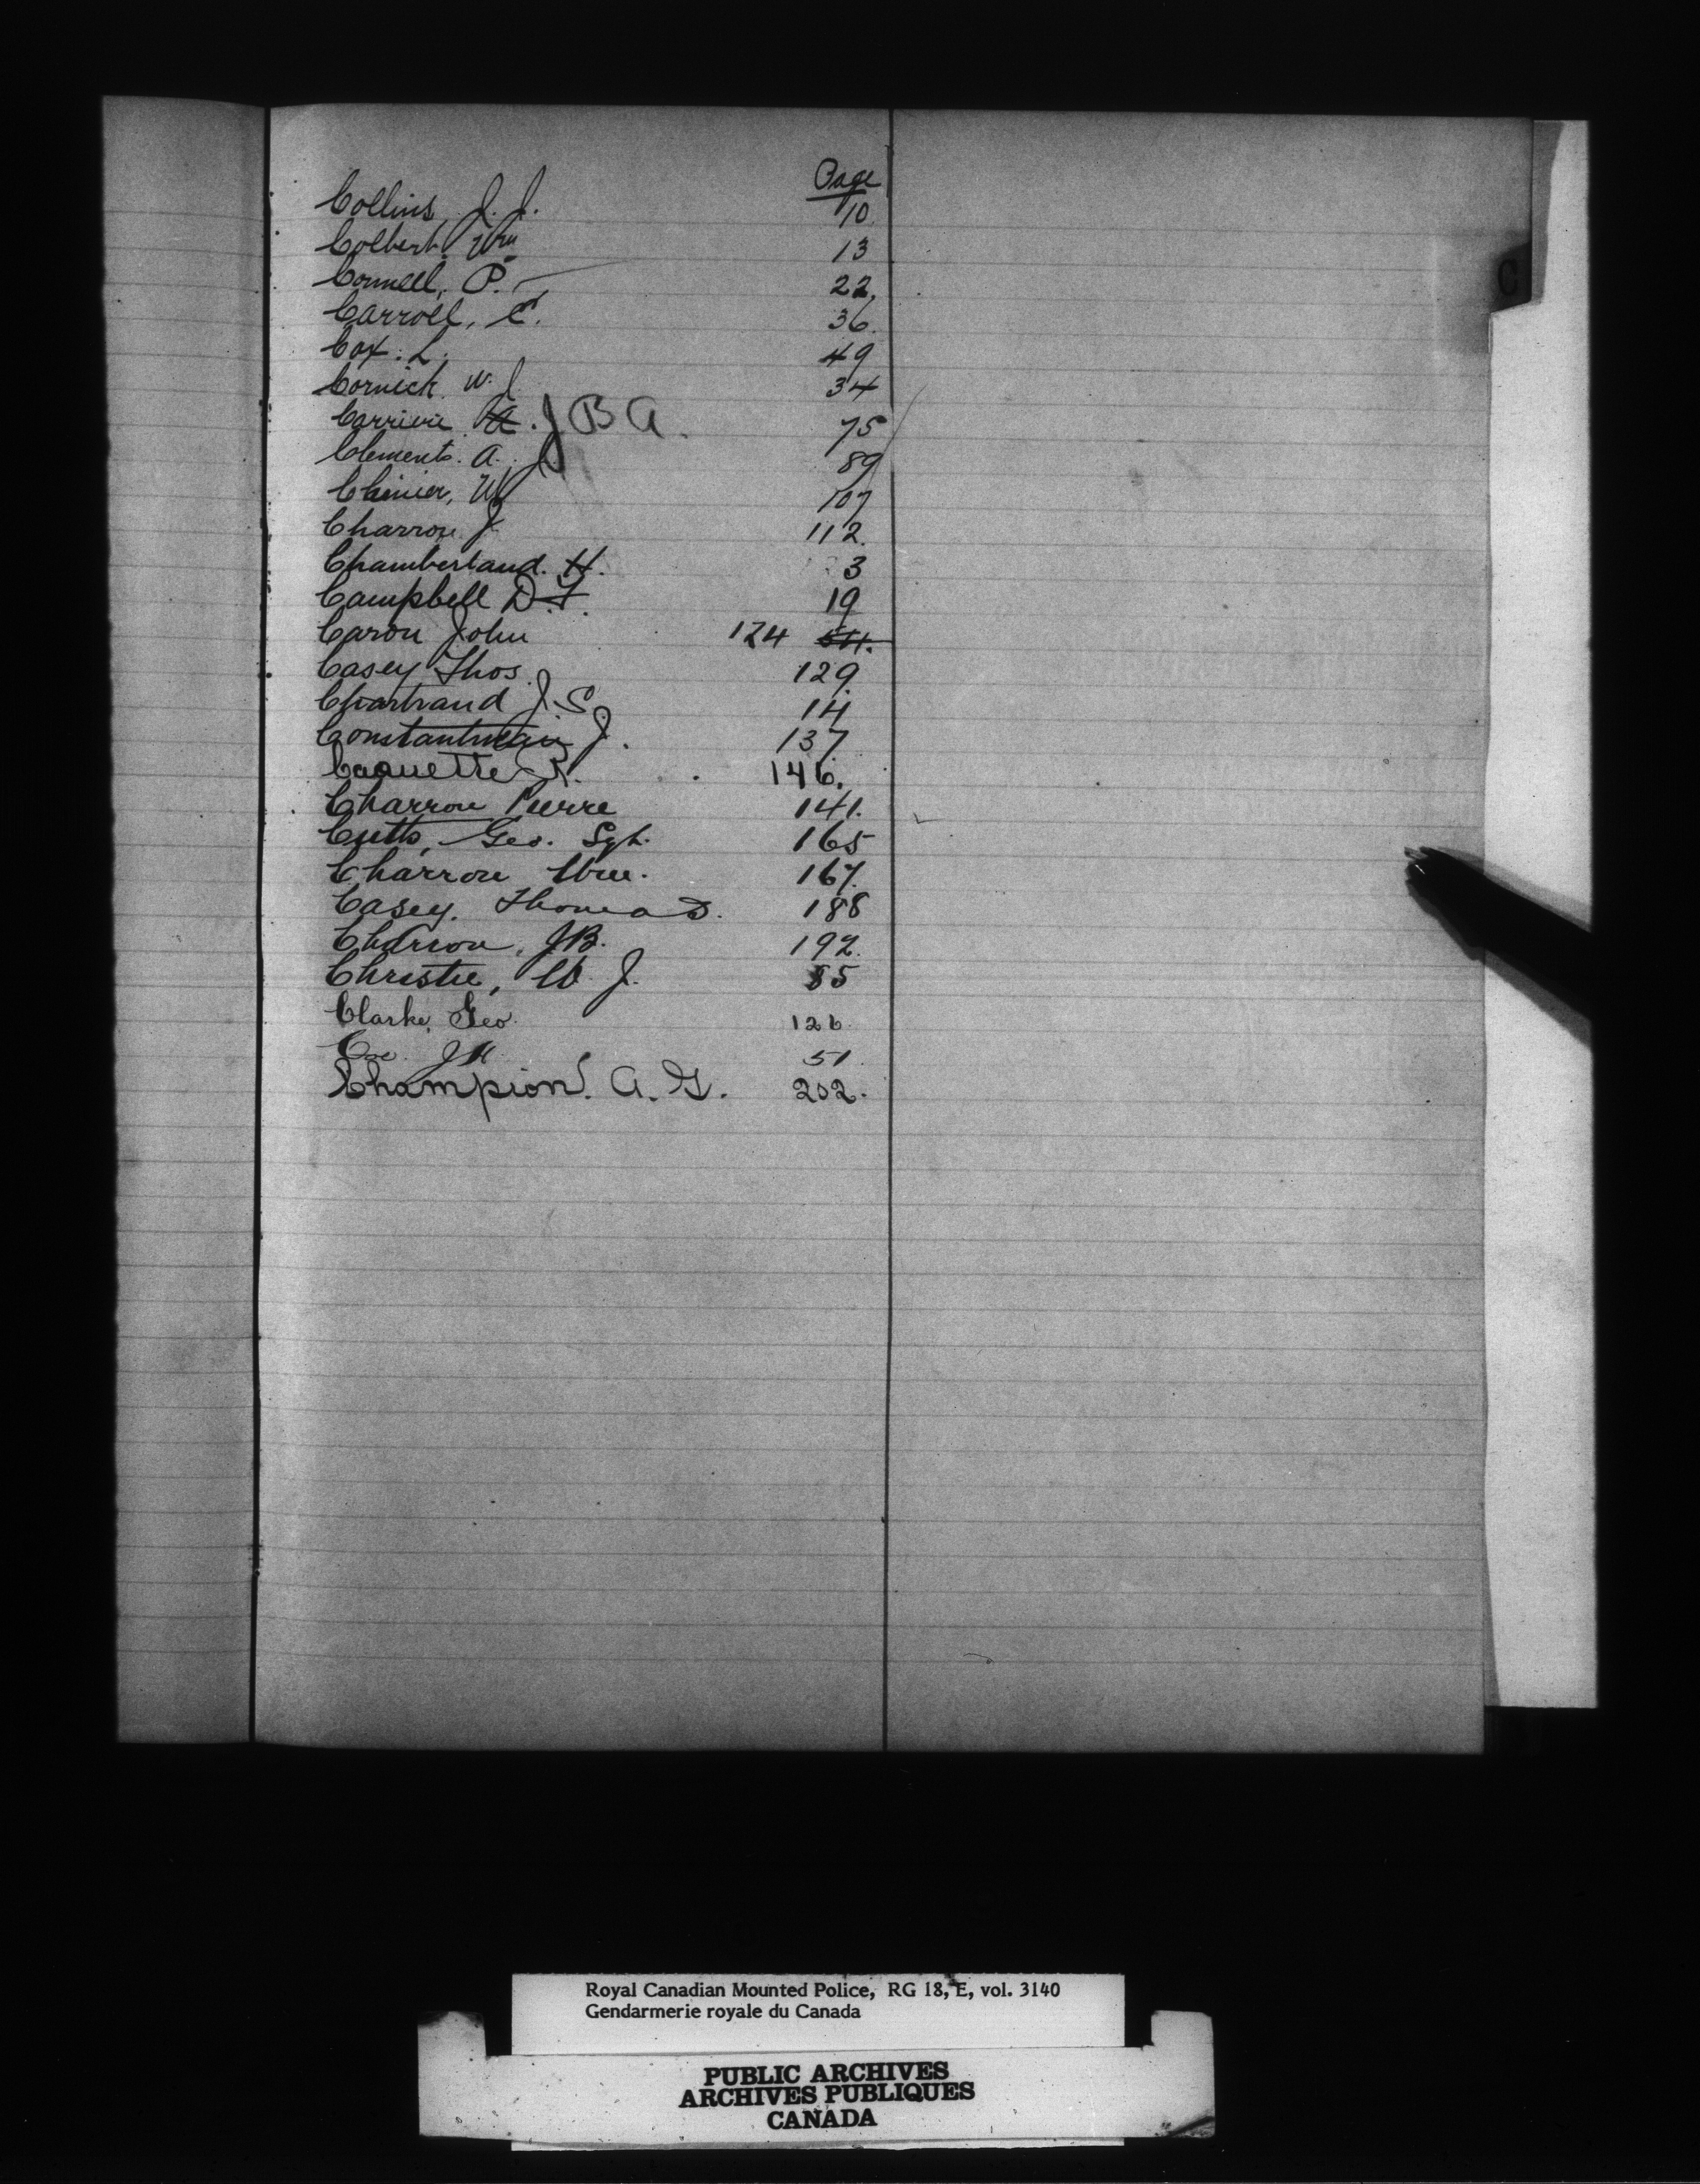 Page
Collins, J. J. 10
Colbert. Wm 13
Connell, P. 22.
Carroll, C. 36.
Cox. L. 49
Cornick. W. J. 34
Carriere A. J B A. 75
Clements. A. J. 89
Chenier, W 107
Charron J. 112.
Chamberland. H. 3
Campbell D. F. 19
Caron John 124 54.
Casey Thos. 129.
Chartrand J. S. 14
Constantineau J. 137.
Caouette R. 146.
Charron Pierre 141.
Cutts, Geo. Sgt. 165
Charron Wm. 167.
Casey. Thomas. 188
Charron, J.B. 192.
Christie, W. J. 85
Clarke, Geo. 126.
Cox. J H 51.
Champion. A. G. 202.
C
Royal Canadian Mounted Police, RG 18, E, vol. 3140
Gendarmerie royale du Canada
PUBLIC ARCHIVES
ARCHIVES PUBLIQUES
CANADA